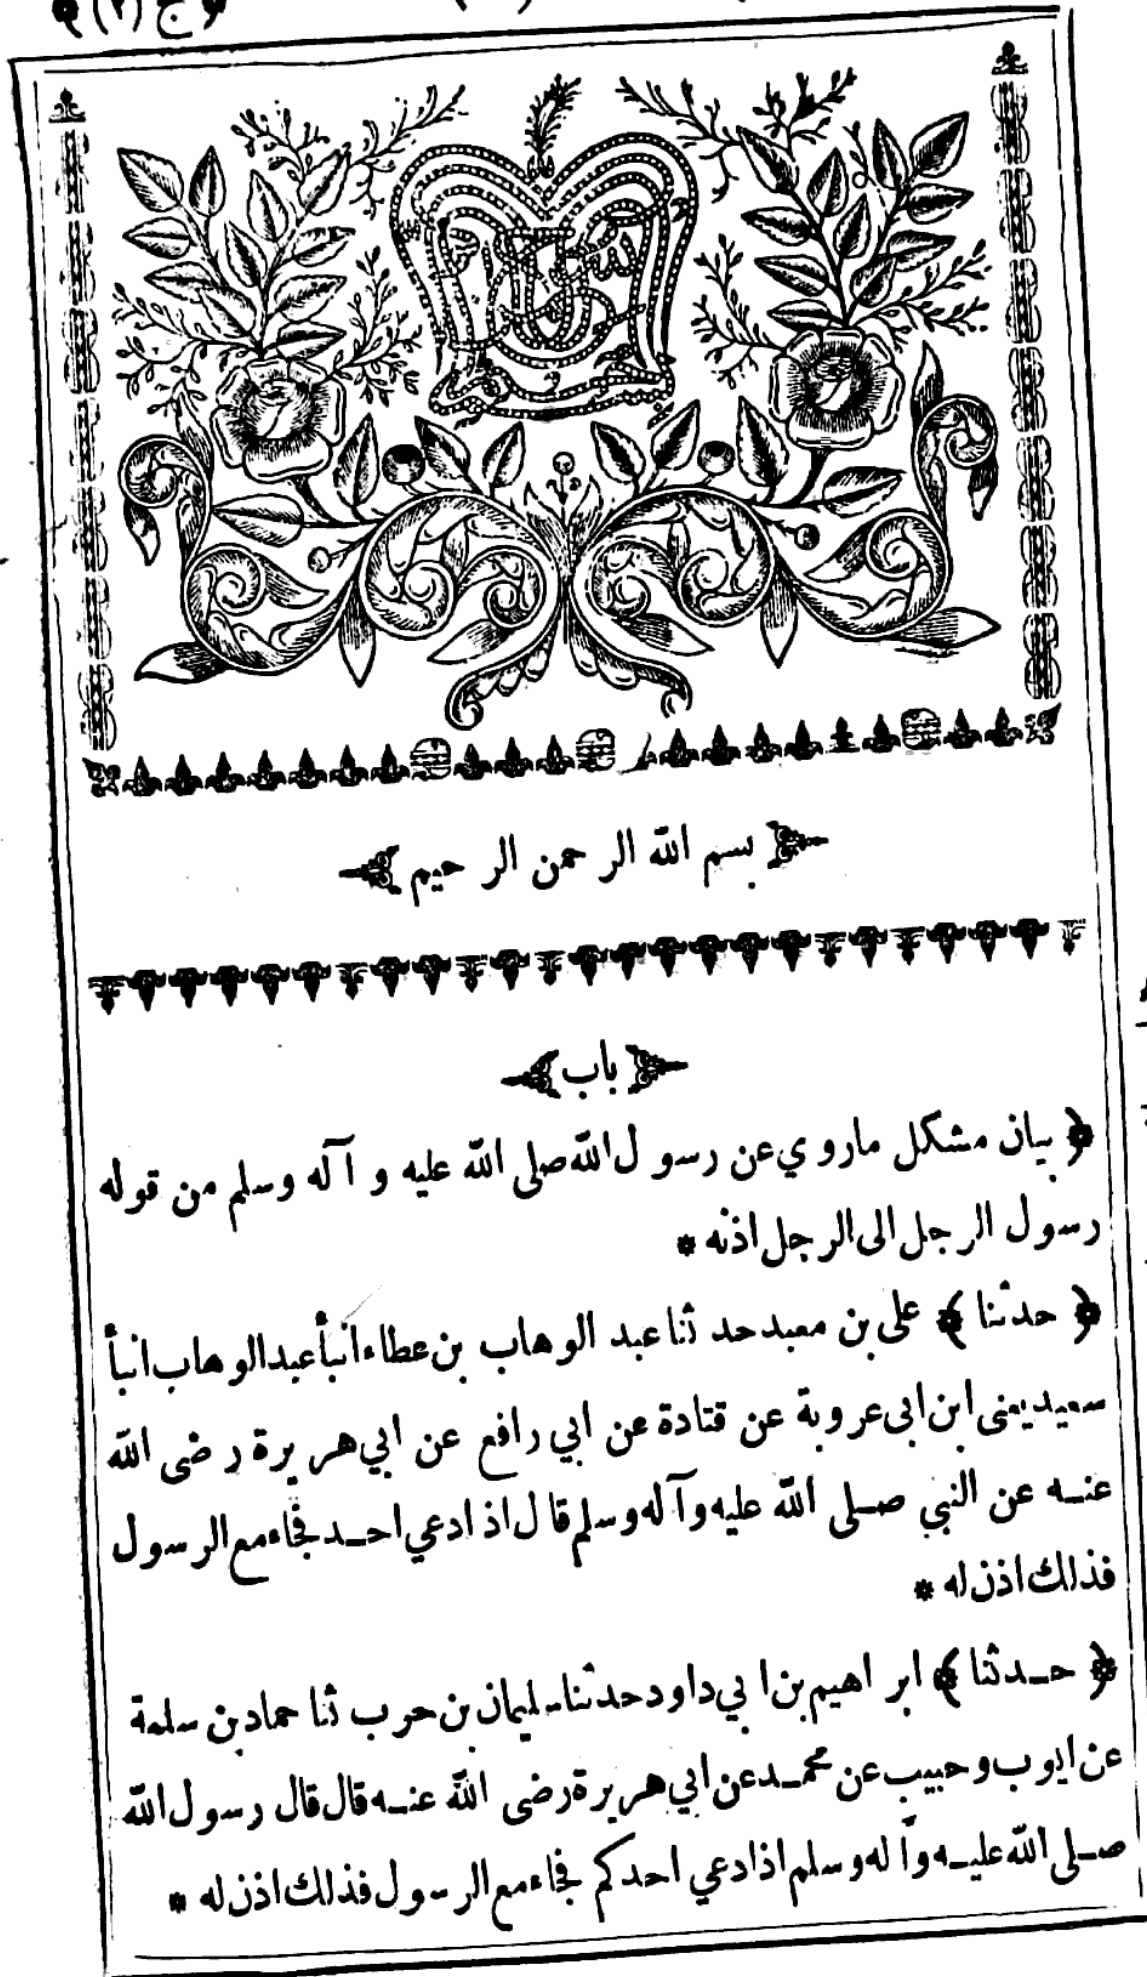 ج (٢)
﴿ بسم الله الرحمن الرحيم ﴾
﴿ باب ﴾
﴿ بيان مشكل ماروي عن رسول الله صلى الله عليه وآله وسلم من قوله
رسول الرجل الى الرجل اذنه *
﴿ حدثنا ﴾ على بن معبد حدثنا عبد الوهاب بن عطاء أنبأ عبد الوهاب انبأ
سعيد يعنى ابن ابى عروبة عن قتادة عن ابي رافع عن ابي هريرة رضى الله
عنه عن النبي صلى الله عليه وآله وسلم قال اذا دعي احد فجاء مع الرسول
فذلك اذن له *
﴿ حدثنا ﴾ ابراهيم بن ابي داود حدثنا سليمان بن حرب ثنا حماد بن سلمة
عن ايوب وحبيب عن محمد عن ابي هريرة رضى الله عنه قال قال رسول الله
صلى الله عليه وآله وسلم اذا دعي احدكم فجاء مع الرسول فذلك اذن له *